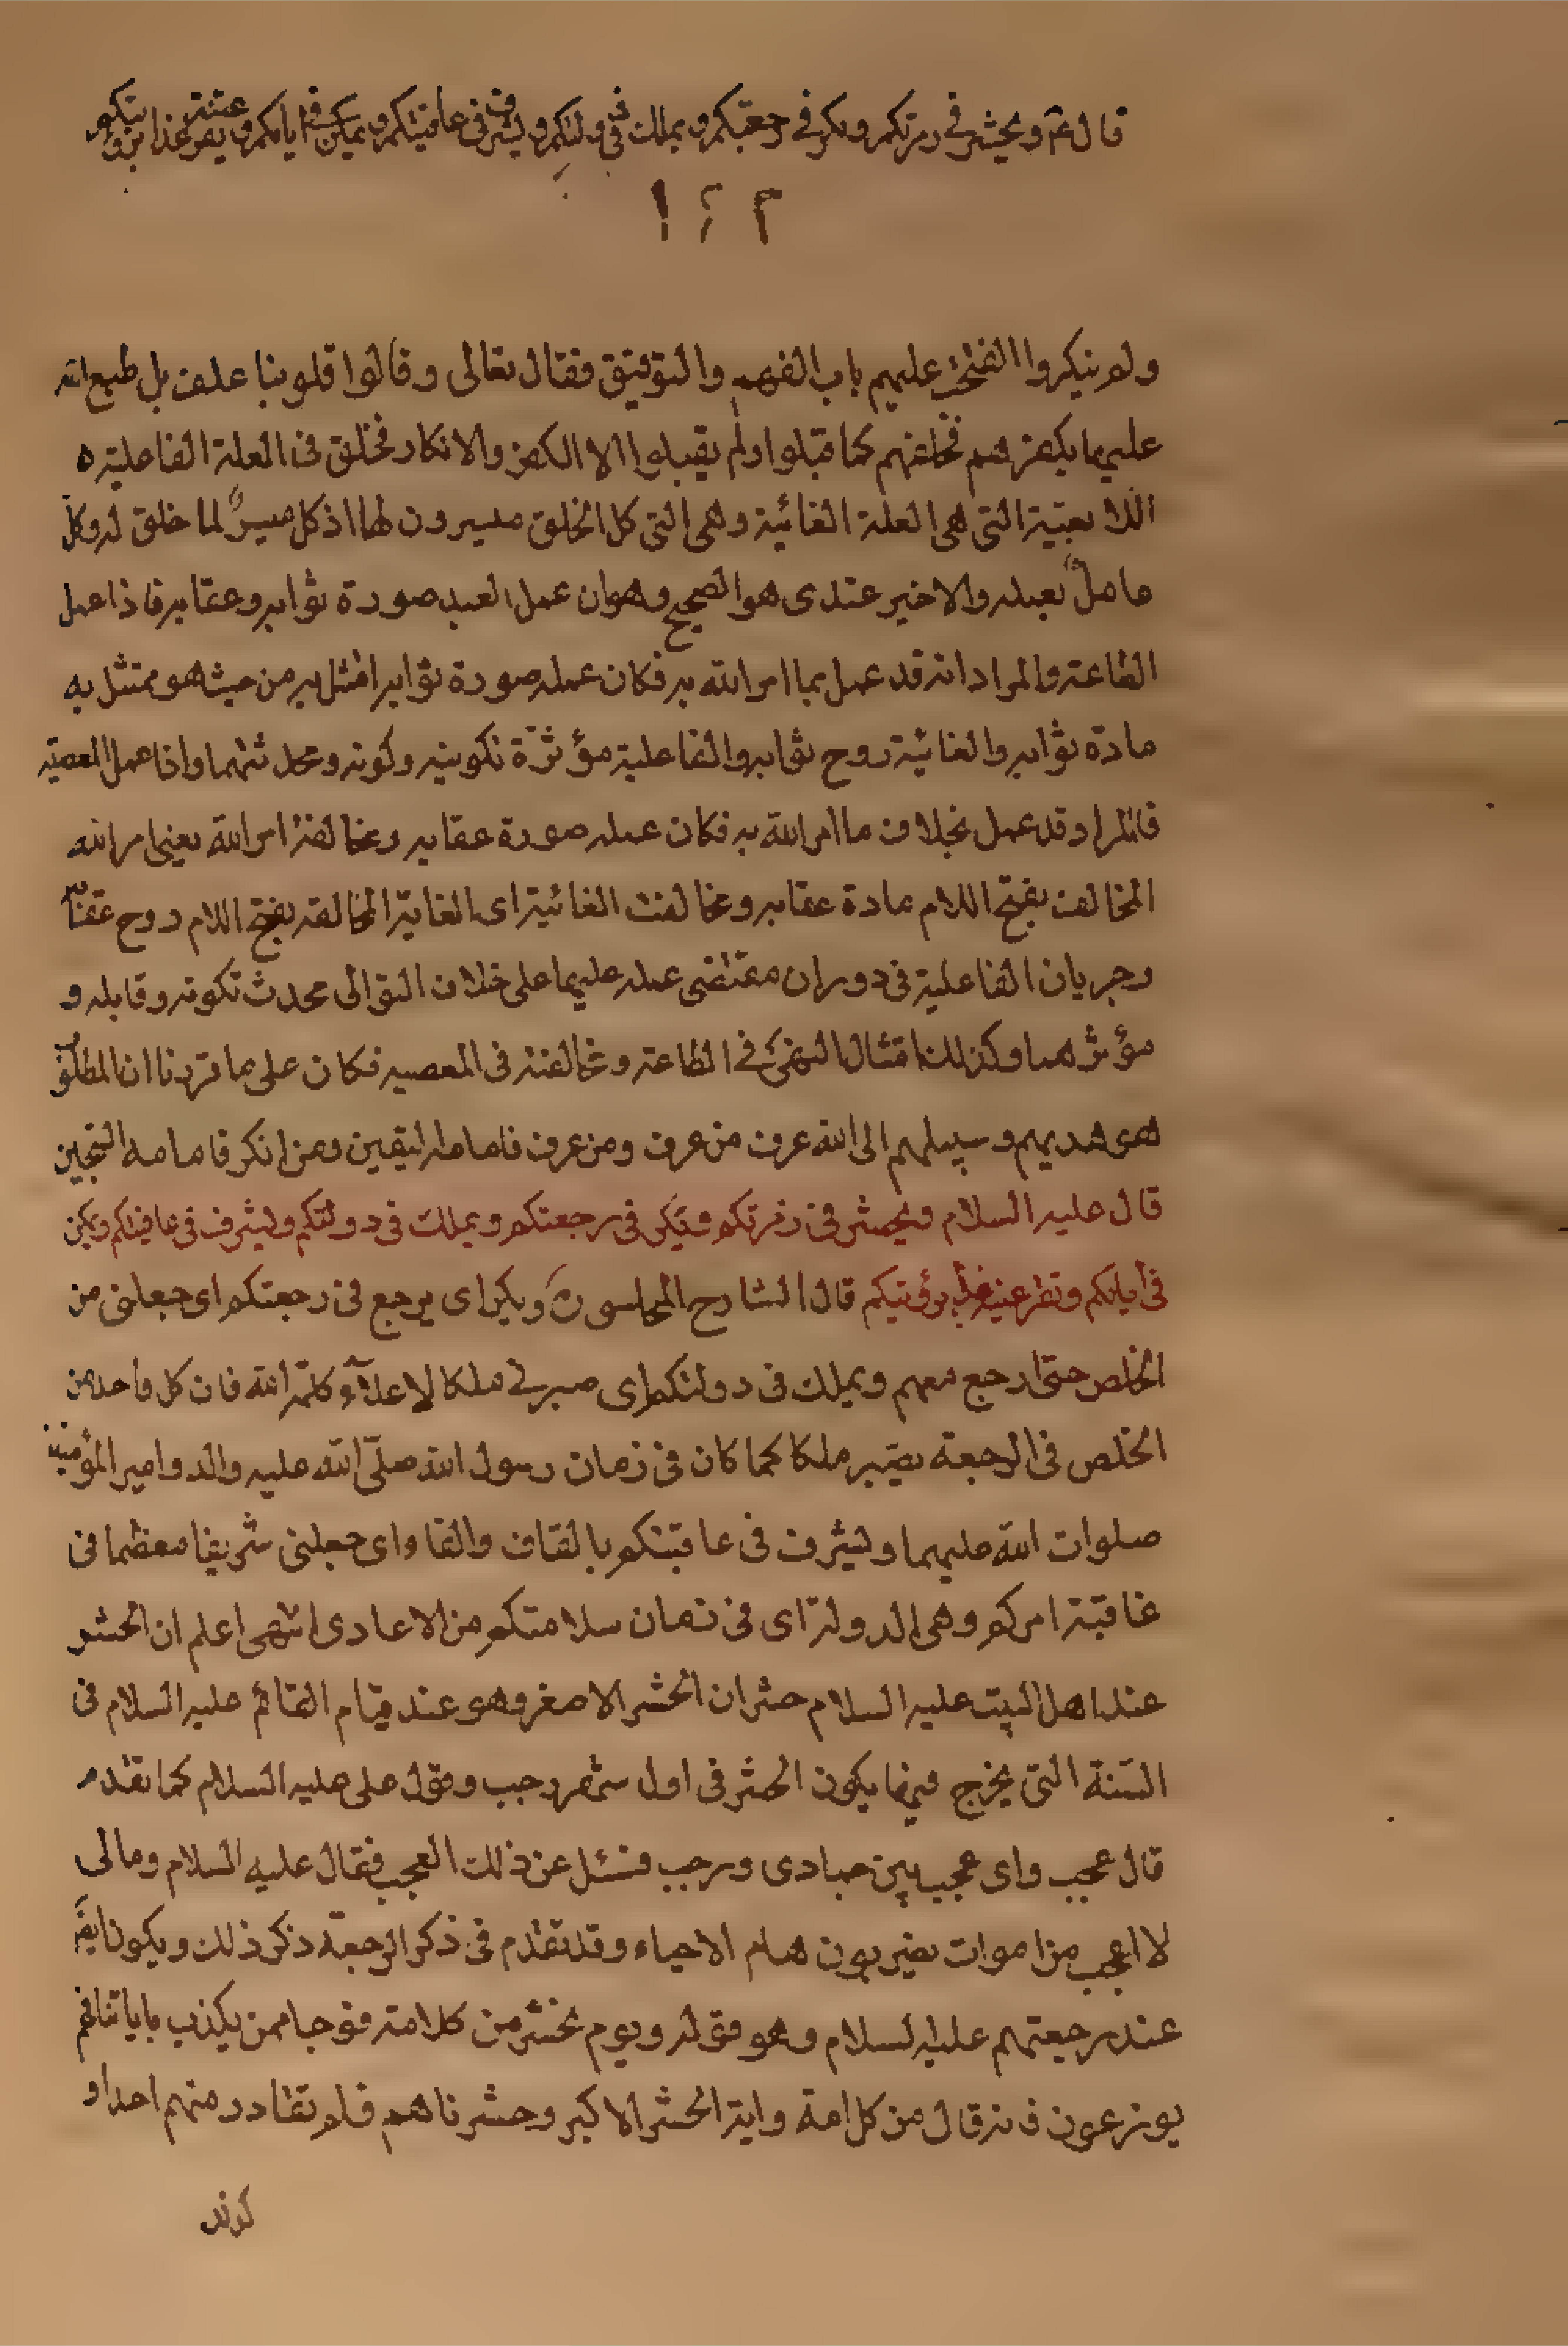 قال ع ويحشر في زمرتكم ويكر في رجعتكم ويملك في دولتكم ويشرف في عافيتكم ويمكن في ايامكم وتقر عينه غدا برؤيتكم
١٤٣
ولو لم ينكروا لفتحت عليهم باب الفهم والتوفيق فقال تعالى وقالوا قلوبنا غلف بل طبع الله
عليها بكفرهم فخلقهم كما قبلوا ولم يقبلوا الا الكفر والانكار فخلق في العلة الفاعلية ه
التي هي العلة الغائية وهي التي كل الخلق ميسرون لها اذ كل ميسر لما خلق له وكل
عامل بعمله والاخير عندى هو الصحيح وهو ان عمل العبد صورة ثوابه وعقابه فاذا عمل
الطاعة والمراد انه قد عمل بما امر الله به فكان عمله صورة ثوابه امتثل به من حيث هو ممتثل به
مادة ثوابه والغائية روح ثوابه والفاعلية مؤثرة تكوينه وكونه ومحدثتهما واذا عمل المعصية
فالمراد وقد عمل بخلاف ما امر الله به فكان عمله صورة عقابه ومخالفة امر الله يعني امر الله
المخالف بفتح اللام مادة عقابه ومخالفت الغائية اى الغاية المخالفة بفتح اللام روح عقابه
وجريان الفاعلية في دوران مقتضى عمله عليها على خلاف التوالى محدث تكونه وقابله و
مؤثرهما وكذلك امتثال النهي في الطاعة ومخالفته في المعصيه فكان على ما قررنا ان المطلق
هو هديهم وسبيلهم الى الله عرف من عرف ومن عرف فامامه اليقين ومن انكر فامامه السجين
قال عليه السلام ويحشر في زمرتكم ويكر في رجعتكم ويملك في دولتكم ويشرف في عافيتكم ويمكن
في ايامكم وتقر عينه غدا برؤيتكم قال الشارح المجلسى ره ويكر اى يرجع في رجعتكم اى جعلني من
الخلص حتى ارجع معهم ويملك في دولتكم اى صيرني ملكا لاعلاء كلمة الله فان كل واحد من
الخلص في الرجعة يصير ملكا كما كان في زمان رسول الله صلى الله عليه واله وامير المؤمنين
صلوات الله عليهما ويشرف في عاقبتكم بالقاف والفاء اى جعلني شريفا معظما في
عاقبة امركم وهي الدولة اى في زمان سلامتكم من الاعادى انتهى اعلم ان الحشر
عند اهل البيت عليه السلام حشران الحشر الاصغر وهو عند قيام القائم عليه السلام في
السنة التي يخرج فيها يكون الحشر في اول شهر رجب وقول على عليه السلام كما تقدم
قال عجب واى عجب بين جمادى ورجب فسئل عن ذلك العجب فقال عليه السلام ومالى
لا اعجب من اموات يضربون هام الاحياء وقد تقدم في ذكر الرجعة ذكر ذلك ويكون ايضا
عند رجعتهم عليه السلام وهو قوله ويوم نحشر من كل امة فوجا ممن يكذب باياتنا فهم
يوزعون فانه قال من كل امة واية الحشر الاكبر وحشرناهم فلم نغادر منهم احدا و